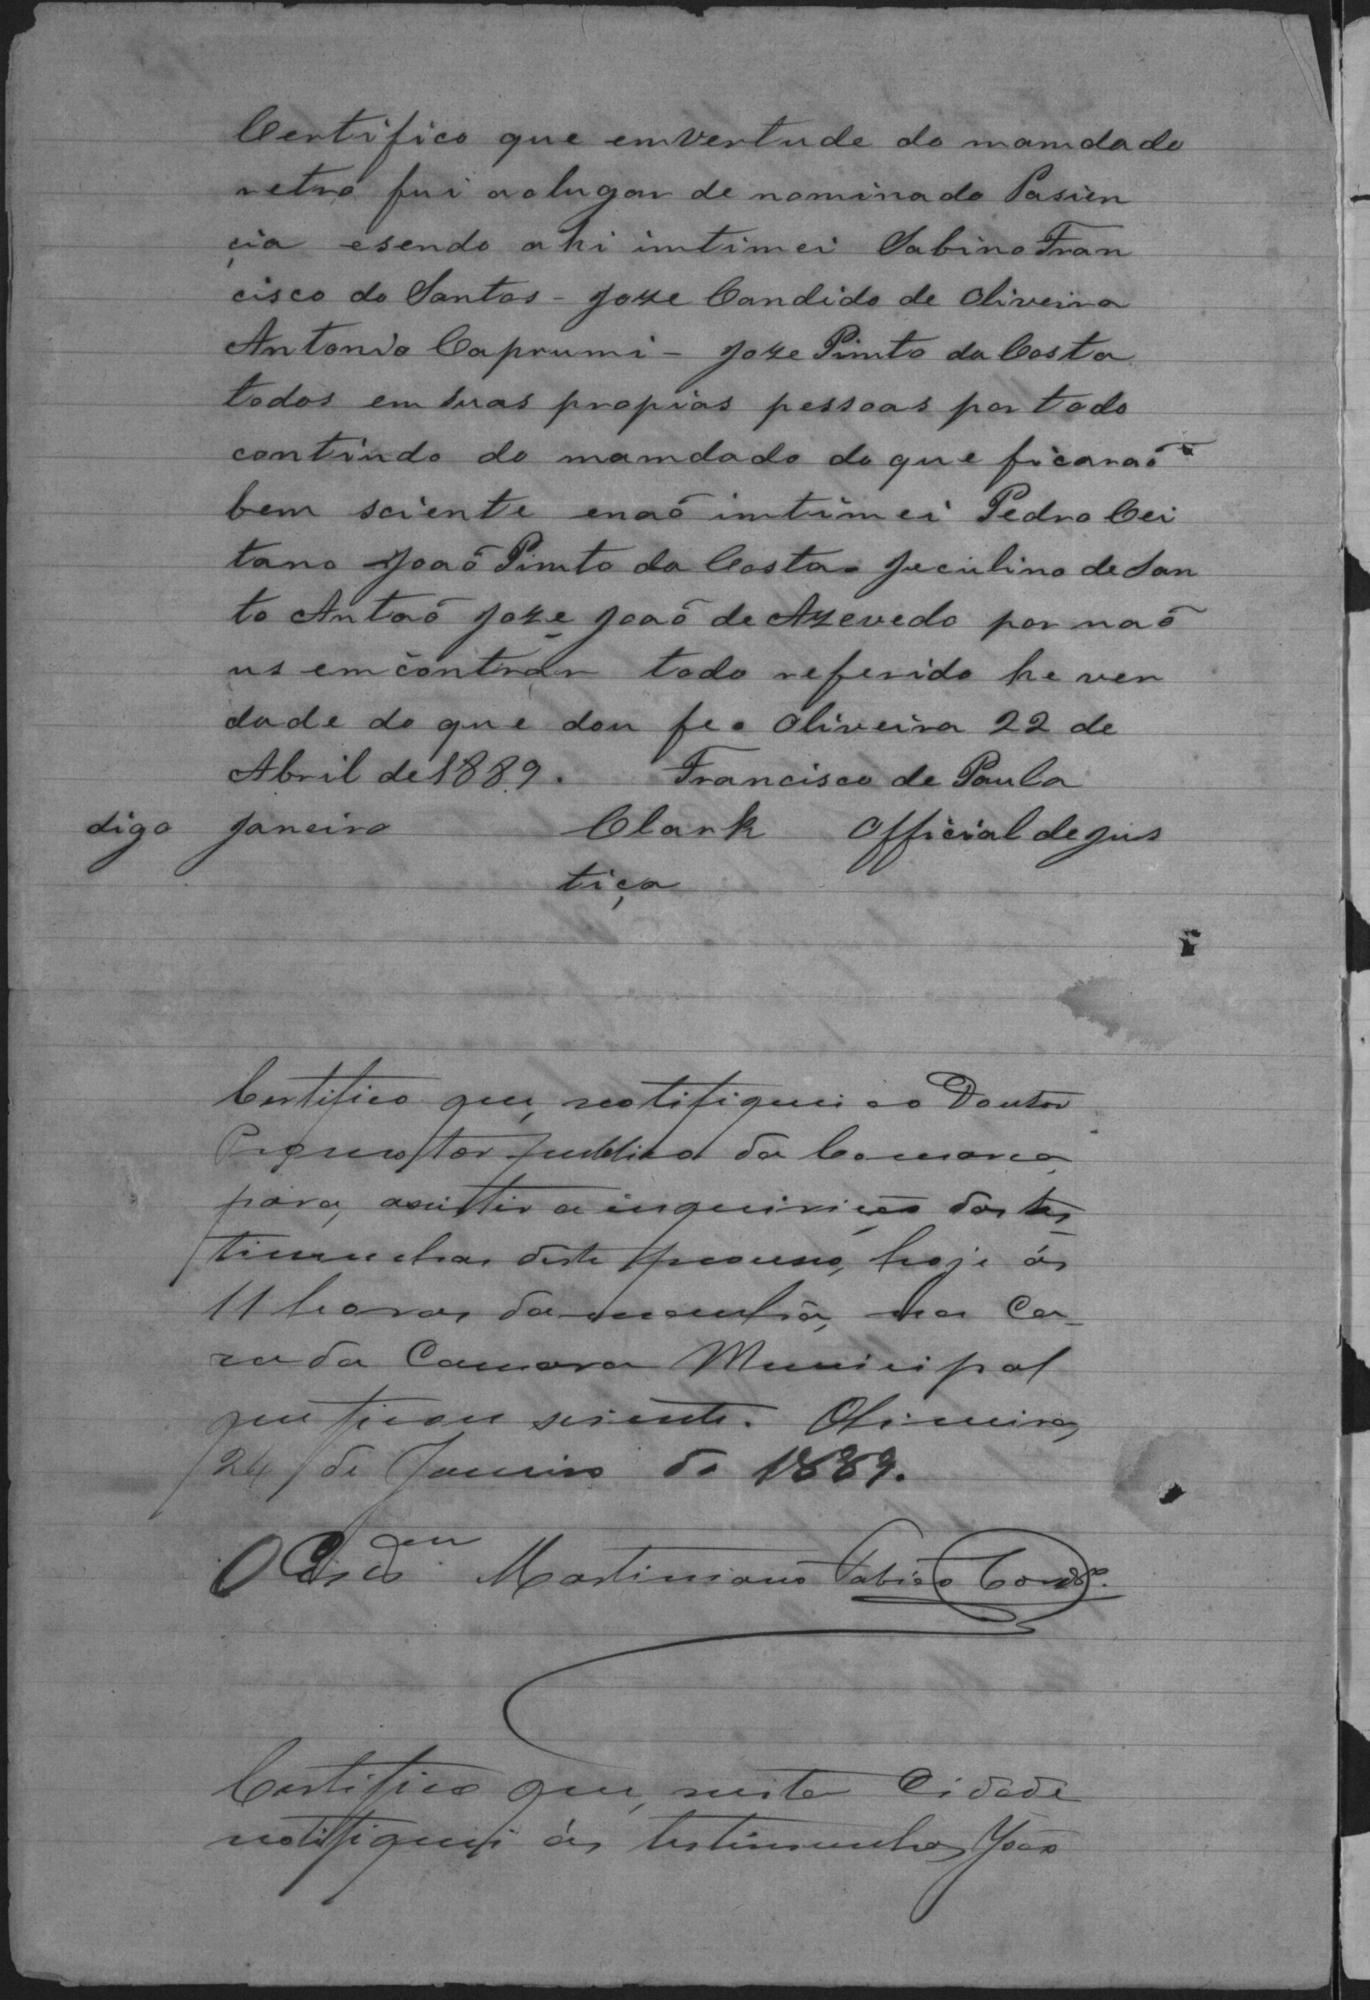 Certifico que emvertude do mamdado
retro fui aolugar de nominado Pasien
çia esendo ahi imtimei Sabino Fran
cisco do Santos - Joze Candido de Oliveira
Antonio Caprumi - Joze Pimto da Costa
todos em suas propias pessoas por todo
contindo do mamdado do que ficaraõ
bem sciente enaõ imtimei Pedro Cei
tano Joaõ Pimto da Costa. Jeculino de San
to Antaõ Joze Joaõ de Azevedo por naõ
us emcontrar todo referido he ver
dade do que dou fe. Oliveira 22 de
Abril de 1889. Francisco de Paula
digo Janeiro Clark Official de jus
tiça
Certifico que, notifiquei ao Doutor
Promotor publico da Comarca
para, assistir a inquirição das tes
timunhas deste processo, hoje ás
11 horas da manhã, na Ca-
za da Camara Municipal
que ficou sciente. Oliveira,
24 de Janeiro de 1889.
O Escrivam Martiniano Fabião
Certifico que, nesta Cidade
notifiquei ás testimunhas João